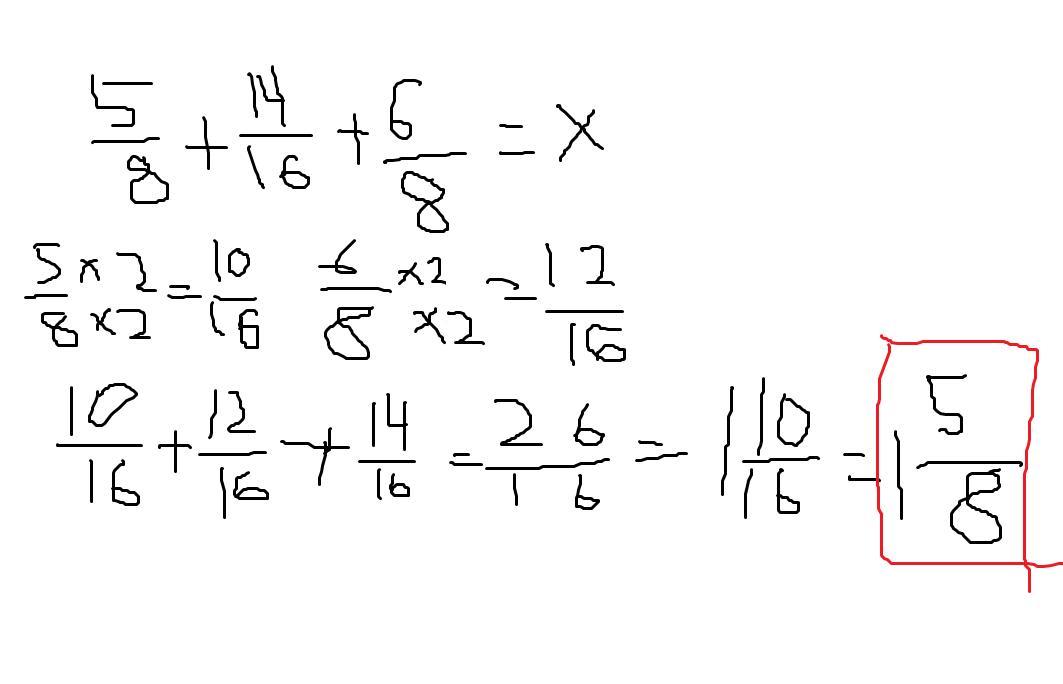 5/8 + 14/16 + 6/8 = x
5/8 x 2/x 2 = 10/16 6/8 x2/x2 = 12/16
10/16 + 12/16 + 14/16 = 26/16 = 1 10/16 = 1 5/8